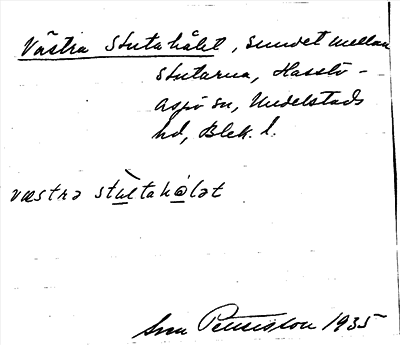 Västra Stutahålet, sundet mellan
stutarna, Hasslö-
Aspö sn, Medelstads
hd, Blek. l.
væstra stutahålət
Sven Petersson 1935